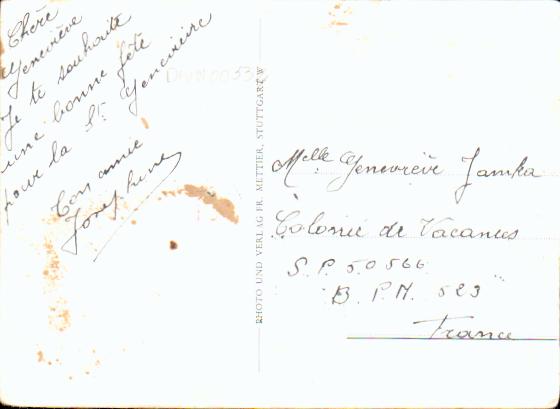 Chère
Geneviève
Je te souhaite
une bonne fête
pour la St Geneviève
Ton amie
Josephine
PHOTO UND VERLAG FR. METTIER, STUTTGART W
Melle Geneviève Jamka
Colonie de Vacances
S. P. 50566
B. P. M. 523
France